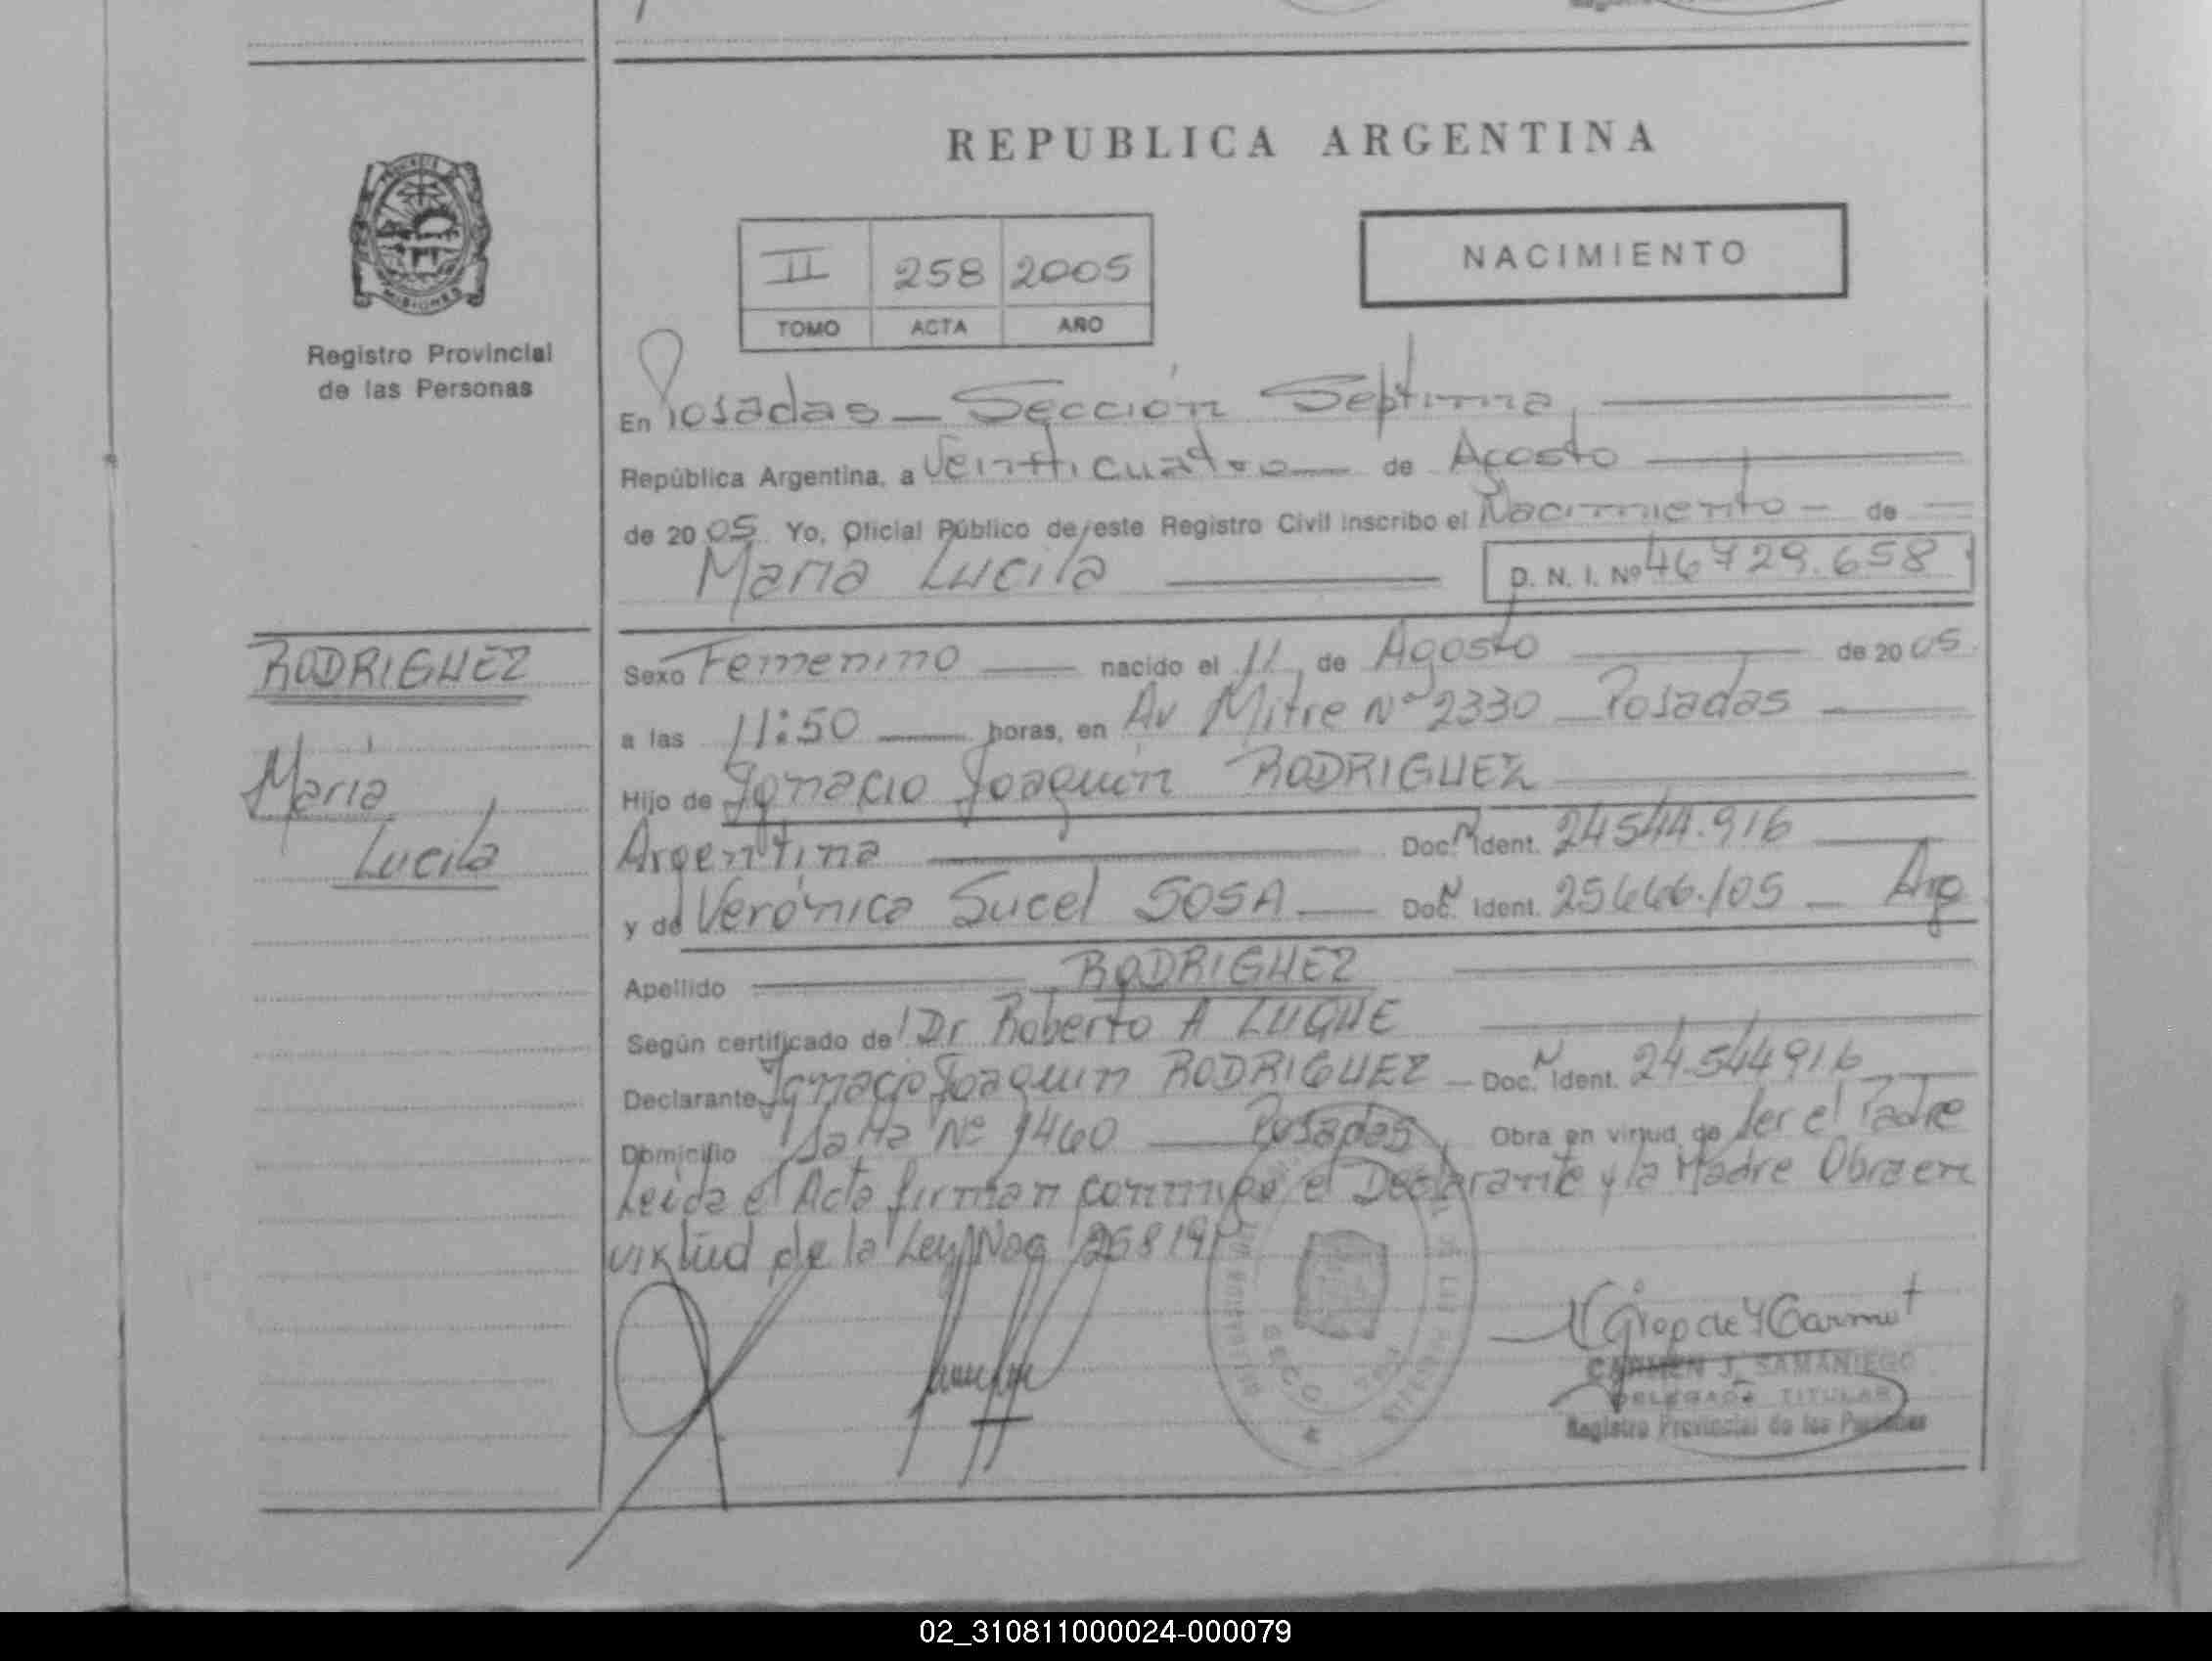 REPUBLICA ARGENTINA
NACIMIENTO
II 258 2005
TOMO ACTA AÑO
MISIONES
Registro Provincial
de las Personas
En Posadas — Sección Septima
República Argentina, a Veinticuatro de Agosto
de 2005 Yo, Oficial Público de este Registro Civil inscribo el Nacimiento - de
María Lucila D. N. I. Nº 46729.658
RODRIGUEZ
María
Lucila
Sexo Femenino nacido el 11 de Agosto de 2005
a las 11:50 horas, en Av Mitre Nº 2330 Posadas
Hijo de Ignacio Joaquín RODRIGUEZ
Argentina Doc. Ident. 24544.916
y de Verónica Sucel SOSA Doc. Ident. Arg
Apellido RODRIGUEZ
Según certificado de Dr Roberto A LUQUE
Declarante Ignacio Joaquin RODRIGUEZ - Doc. Ident. 24.544916
Domicilio Salta Nº 1460 Posadas Obra en virtud de ser el Padre
Leida el Acta firman conmigo el Declarante y la Madre Obra en
virtud de la Ley
CARMEN J. SAMANIEGO
DELEGADA TITULAR
Registro Provincial de las Personas
02_310811000024-000079